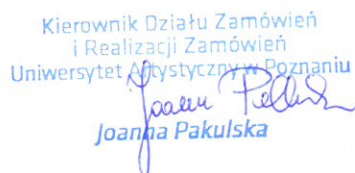 Kierownik Działu Zamówień
i Realizacji Zamówień
Uniwersytet Artystyczny w Poznaniu
Joanna Pakulska